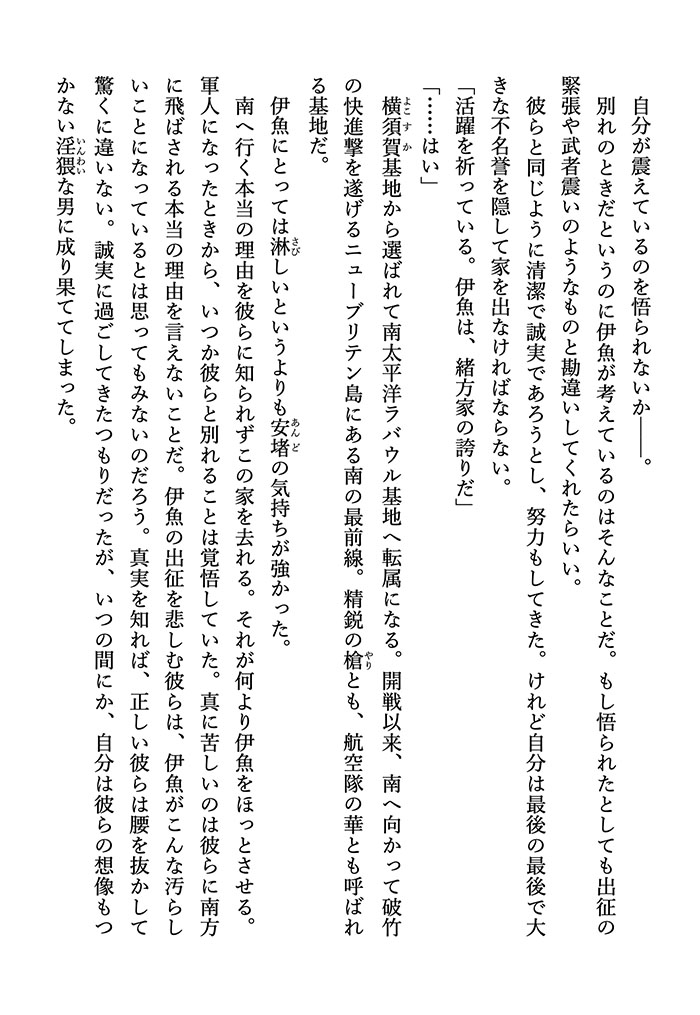 自分が震えているのを悟られないか――。
別れのときだというのに伊魚が考えているのはそんなことだ。もし悟られたとしても出征の
緊張や武者震いのようなものと勘違いしてくれたらいい。
彼らと同じように清潔で誠実であろうとし、努力もしてきた。けれど自分は最後の最後で大
きな不名誉を隠して家を出なければならない。
「活躍を祈っている。伊魚は、緒方家の誇りだ」
「……はい」
横須賀基地から選ばれて南太平洋ラバウル基地へ転属になる。開戦以来、南へ向かって破竹
の快進撃を遂げるニューブリテン島にある南の最前線。精鋭の槍とも、航空隊の華とも呼ばれ
る基地だ。
伊魚にとっては淋しいというよりも安堵の気持ちが強かった。
南へ行く本当の理由を彼らに知られずこの家を去れる。それが何より伊魚をほっとさせる。
軍人になったときから、いつか彼らと別れることは覚悟していた。真に苦しいのは彼らに南方
に飛ばされる本当の理由を言えないことだ。伊魚の出征を悲しむ彼らは、伊魚がこんな汚らし
いことになっているとは思ってもみないのだろう。真実を知れば、正しい彼らは腰を抜かして
驚くに違いない。誠実に過ごしてきたつもりだったが、いつの間にか、自分は彼らの想像もつ
かない淫猥な男に成り果ててしまった。